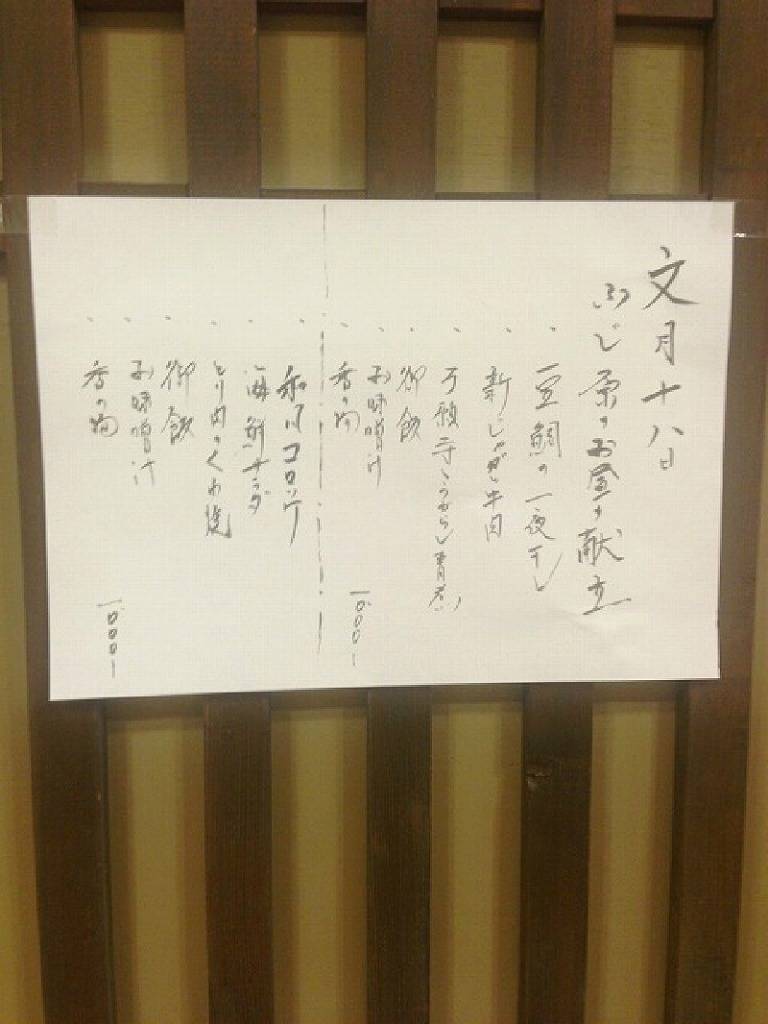 文月十八日
ふじ原のお昼の献立
・豆鯛の一夜干し
・新じゃが牛肉
・万願寺とうがらし青煮
・御飯
・お味噌汁
・香の物
一、〇〇〇ー
・和風コロッケ
・海鮮サラダ
・とり肉のくわ焼
・御飯
・お味噌汁
・香の物
一、〇〇〇ー